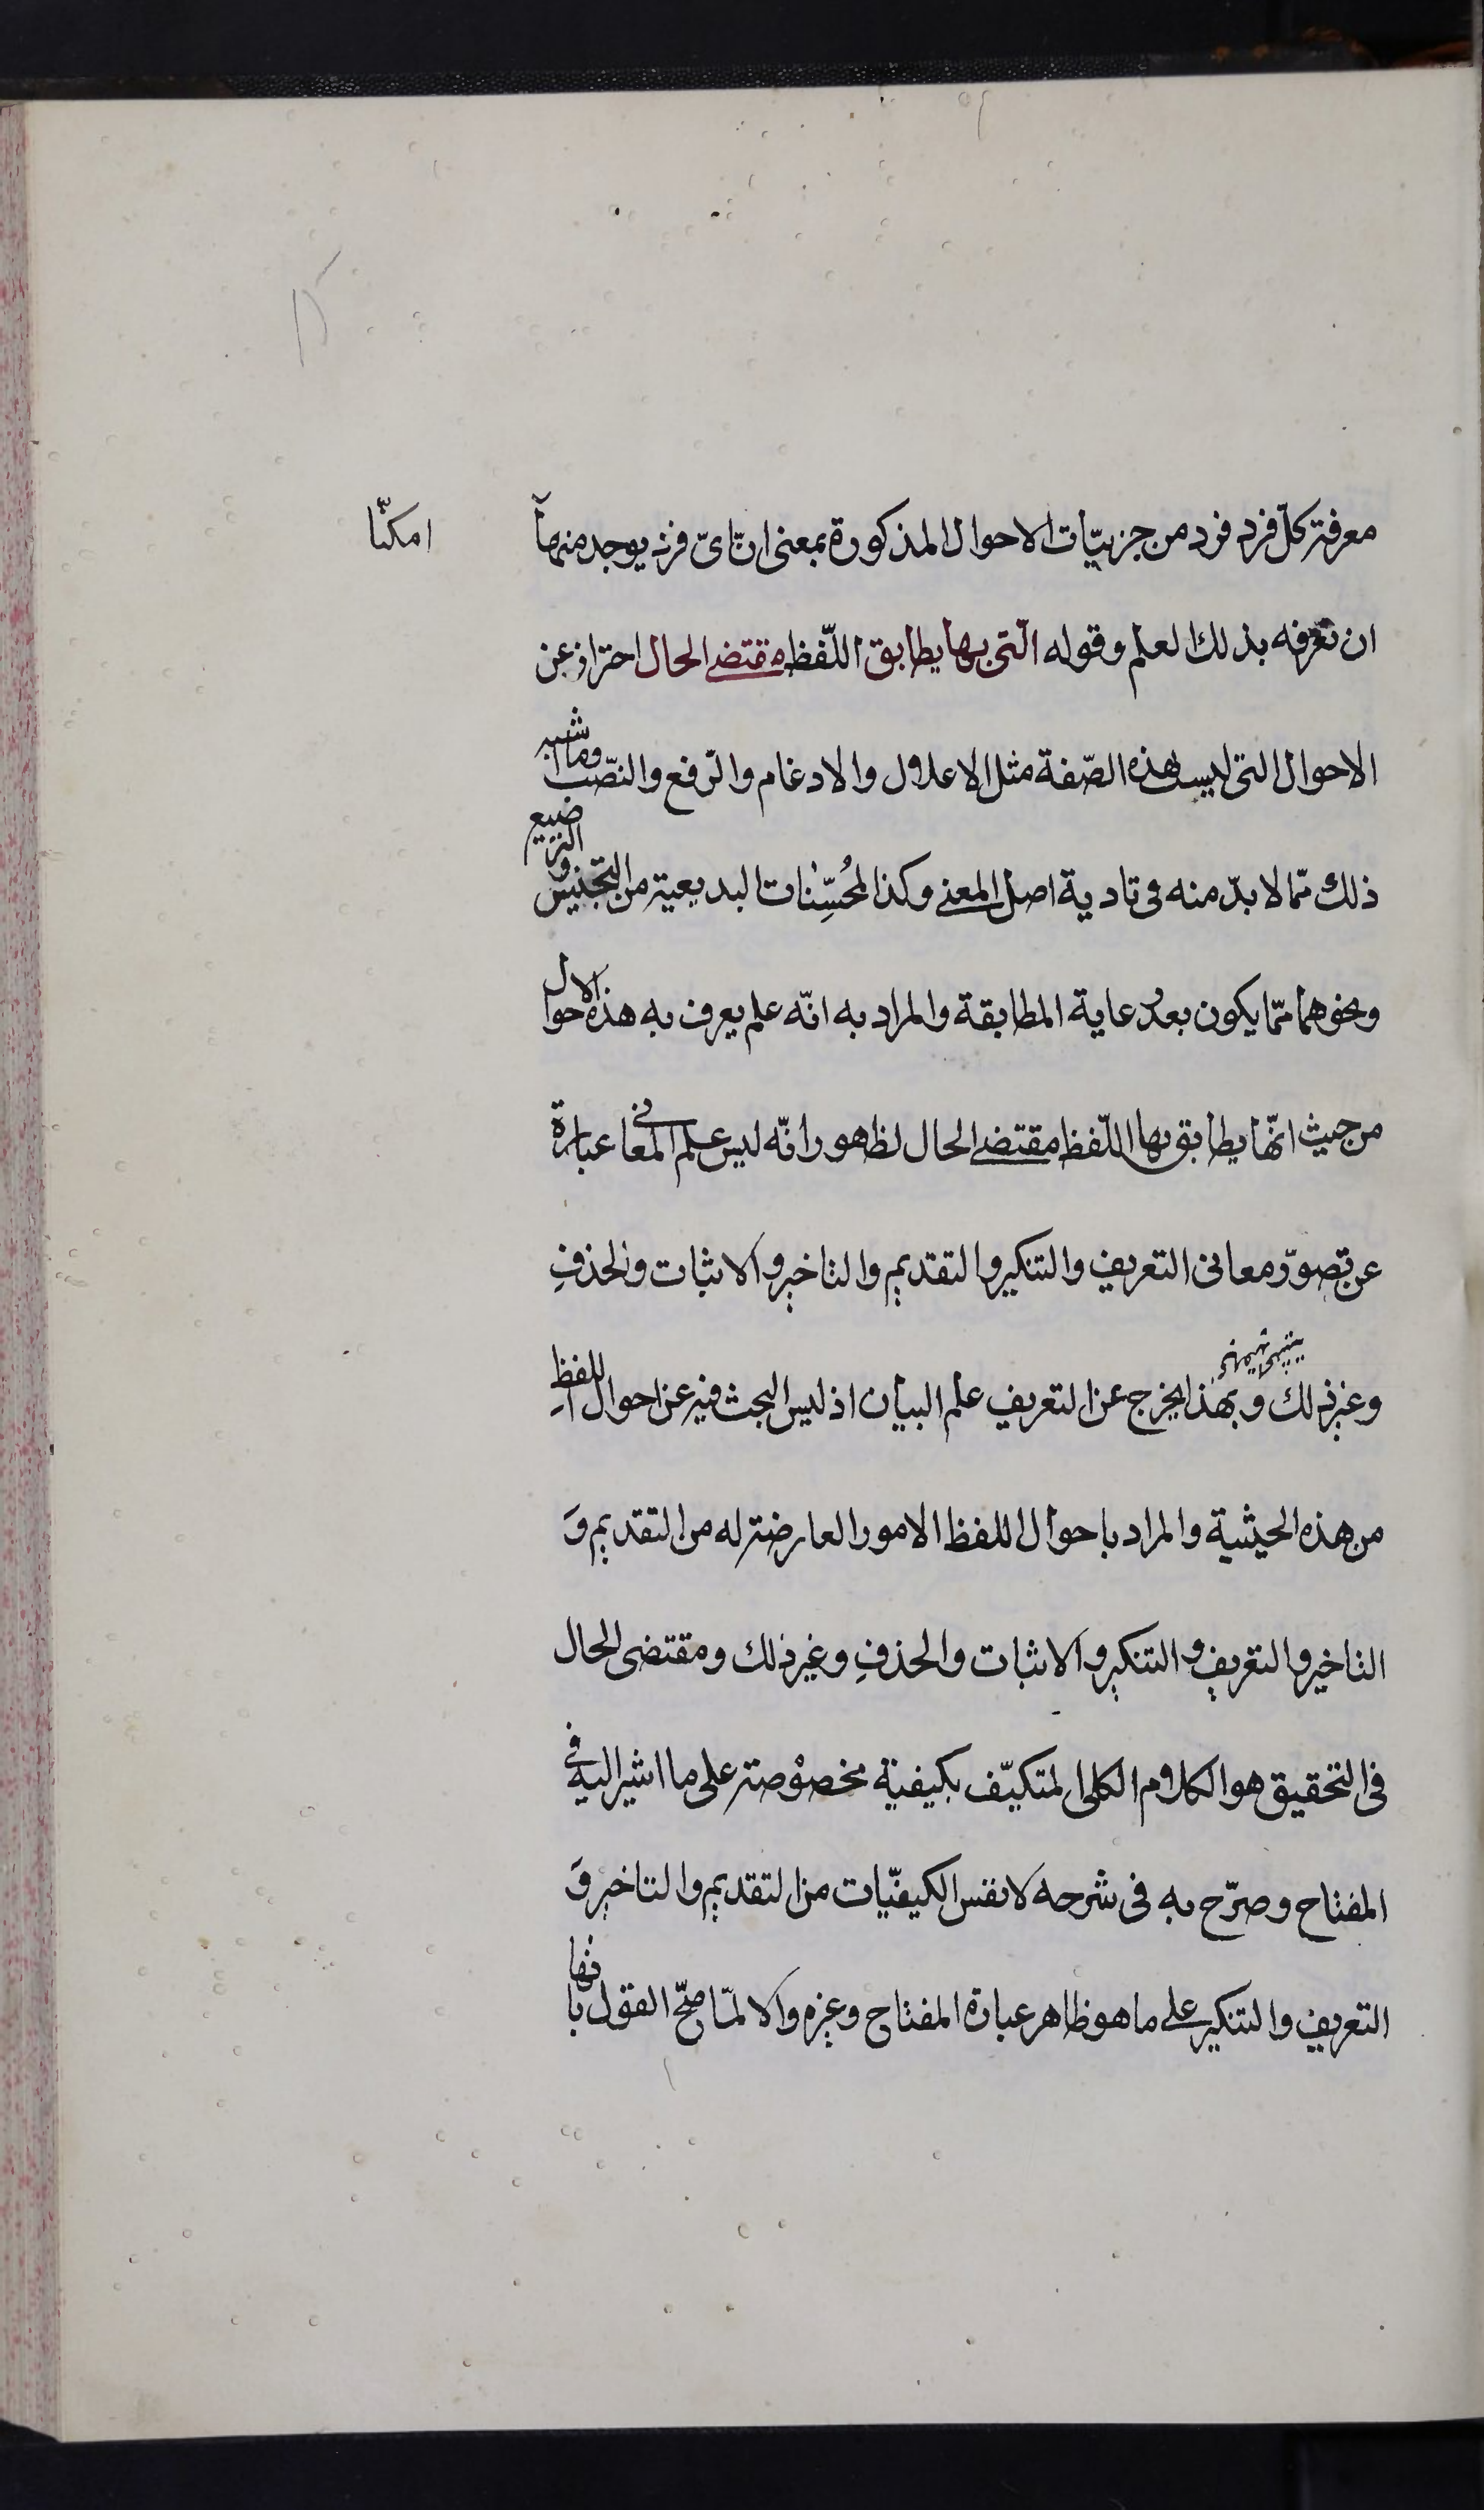 معرفة كلّ فرد فرد من جزئيّات الاحوال المذكورة بمعنى انّ اىّ فرد يوجد منها امكنّا
ان نعرفه بذلك العلم وقوله الّتى بها يطابق اللّفظ مقتضى الحال احتراز عن
الاحوال التى ليست بهذه الصّفة مثل الاعلال والادغام والرّفع والنصّب وما اشبه
ذلك ممّا لا بدّ منه فى تادية اصل المعنى وكذا المُحسِّنات البديعية من التجنيس والترضيع
ونحوهما ممّا يكون بعد رعاية المطابقة والمراد به انّه علم يعرف به هذه الاحوال
من حيث انّها يطابق بها اللّفظ مقتضى الحال لظهور انّه ليس علم المعانى عبارة
عن تصوّر معانى التعريف والتنكير والتقديم والتاخير والاثبات والحذفِ
وغير ذلك وبهذا يخرج عن التعريف علم البيان اذ ليس البحث فيه عن احوال اللفظِ
من هذه الحيثية والمراد باحوال اللفظ الامور العارضة له من التقديم وَ
التاخير والتعريف والتنكير والاثبات والحذفِ وغير ذلك ومقتضى الحال
فى التحقيق هو الكلام الكلى المتكيّف بكيفية مخصوصة على ما اشير اليه فى
المفتاح وصرّح به فى شرحه لا نفس الكيفيّات من التقديم والتاخير وَ
التعريف والتنكير على ما هو ظاهر عبارة المفتاح وغيره والا لمّا صحّ القول بانها